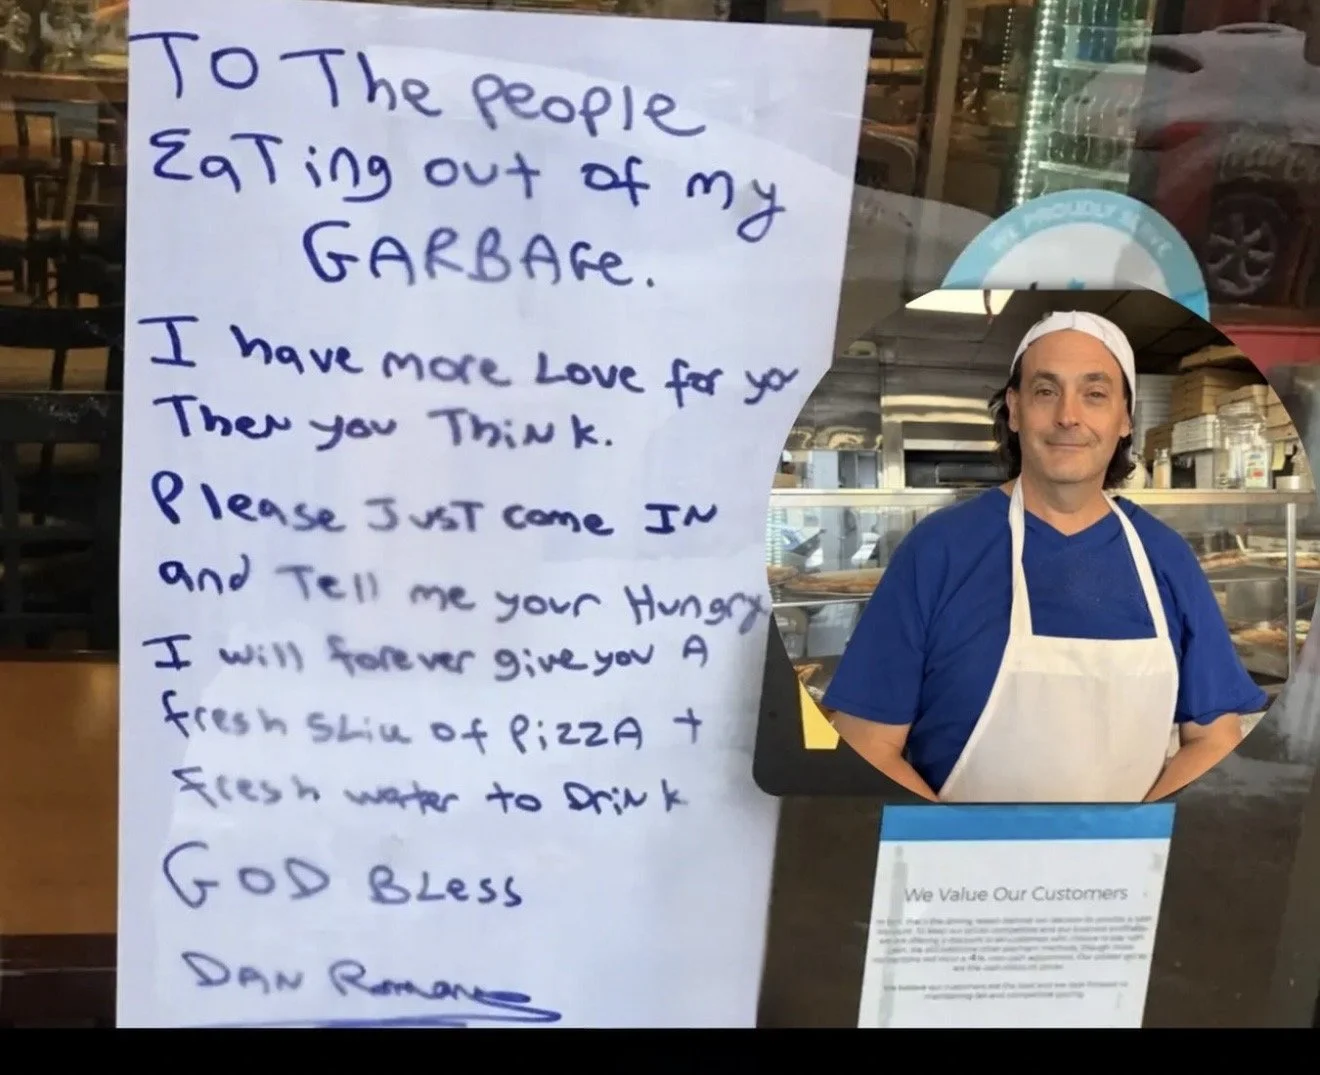 TO The people
EaTing out of my
GARBAGe.
I have more Love for yo
Then you Think.
Please JusT come IN
and Tell me your Hungry
I will forever give you A
fresh Sliu of PizzA +
fresh water to DriNk
GOD BLess
DAN Romano
WE PROUDLY SERVE
We Value Our Customers